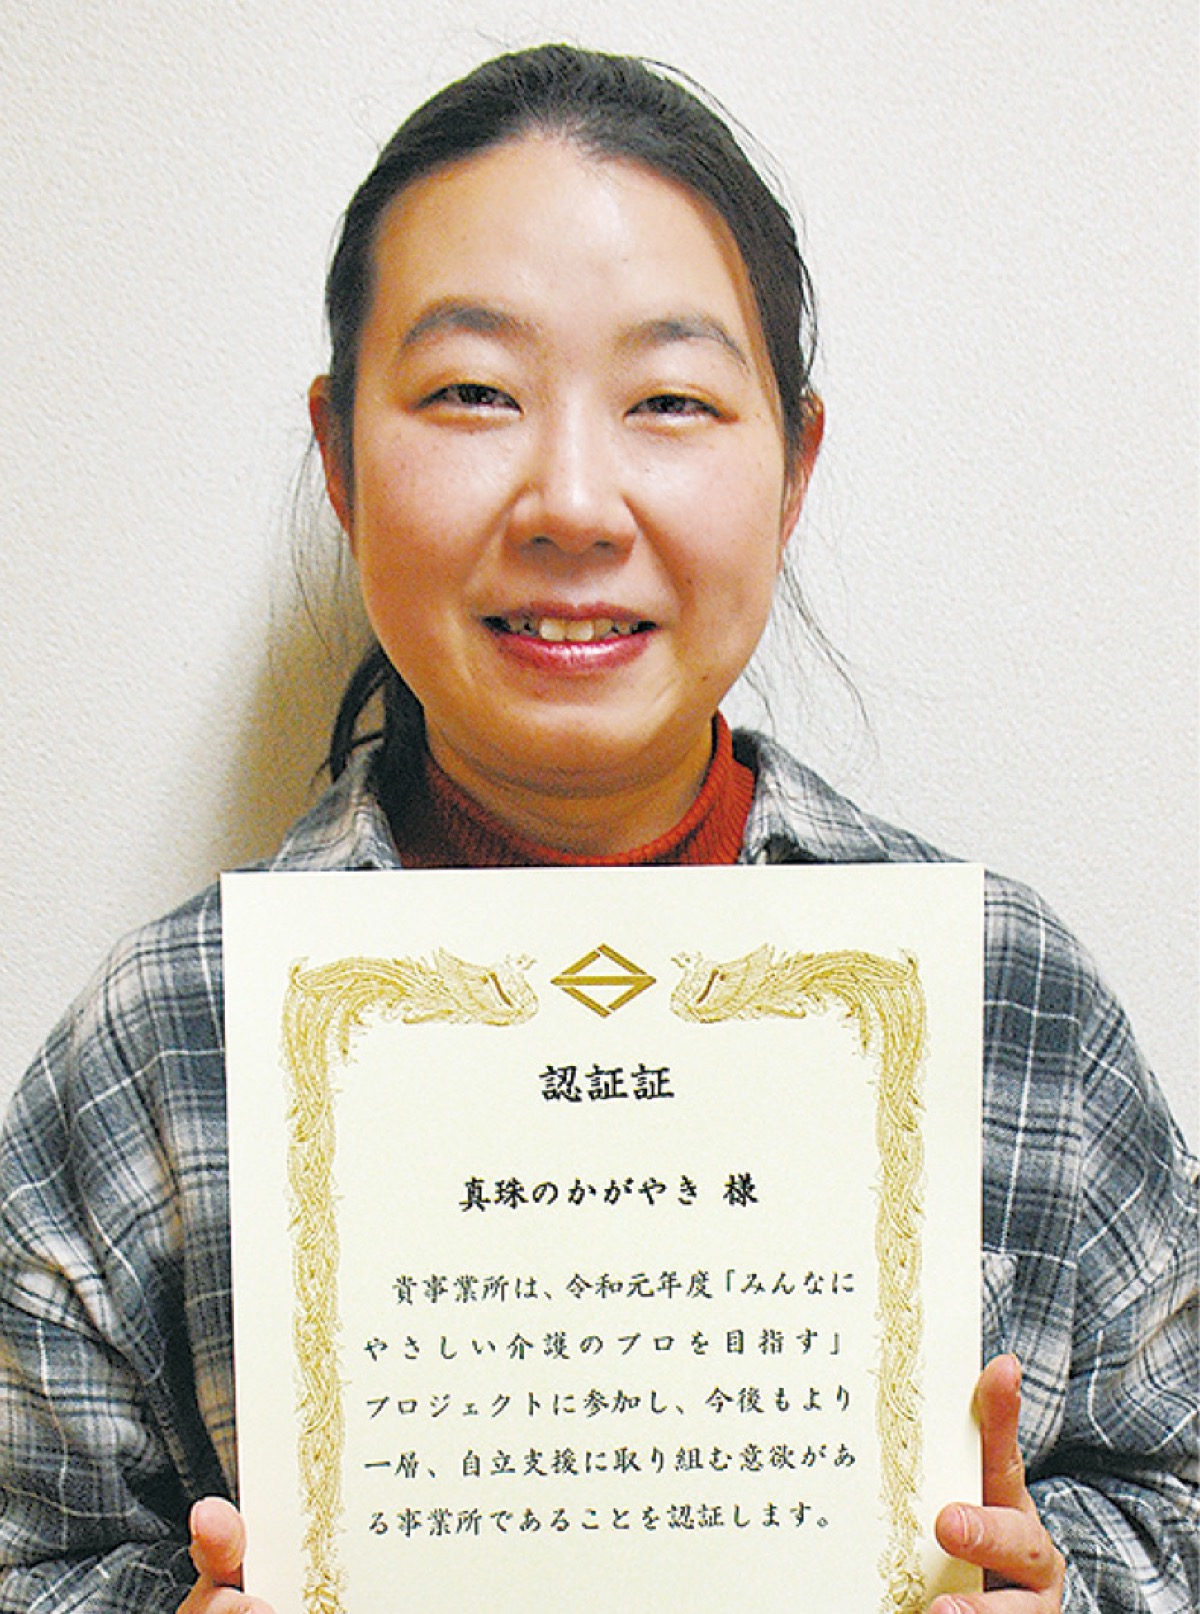 認証証
真珠のかがやき 様
貴事業所は、令和元年度「みんなに
やさしい介護のプロを目指す」
プロジェクトに参加し、今後もより
一層、自立支援に取り組む意欲があ
る事業所であることを認証します。